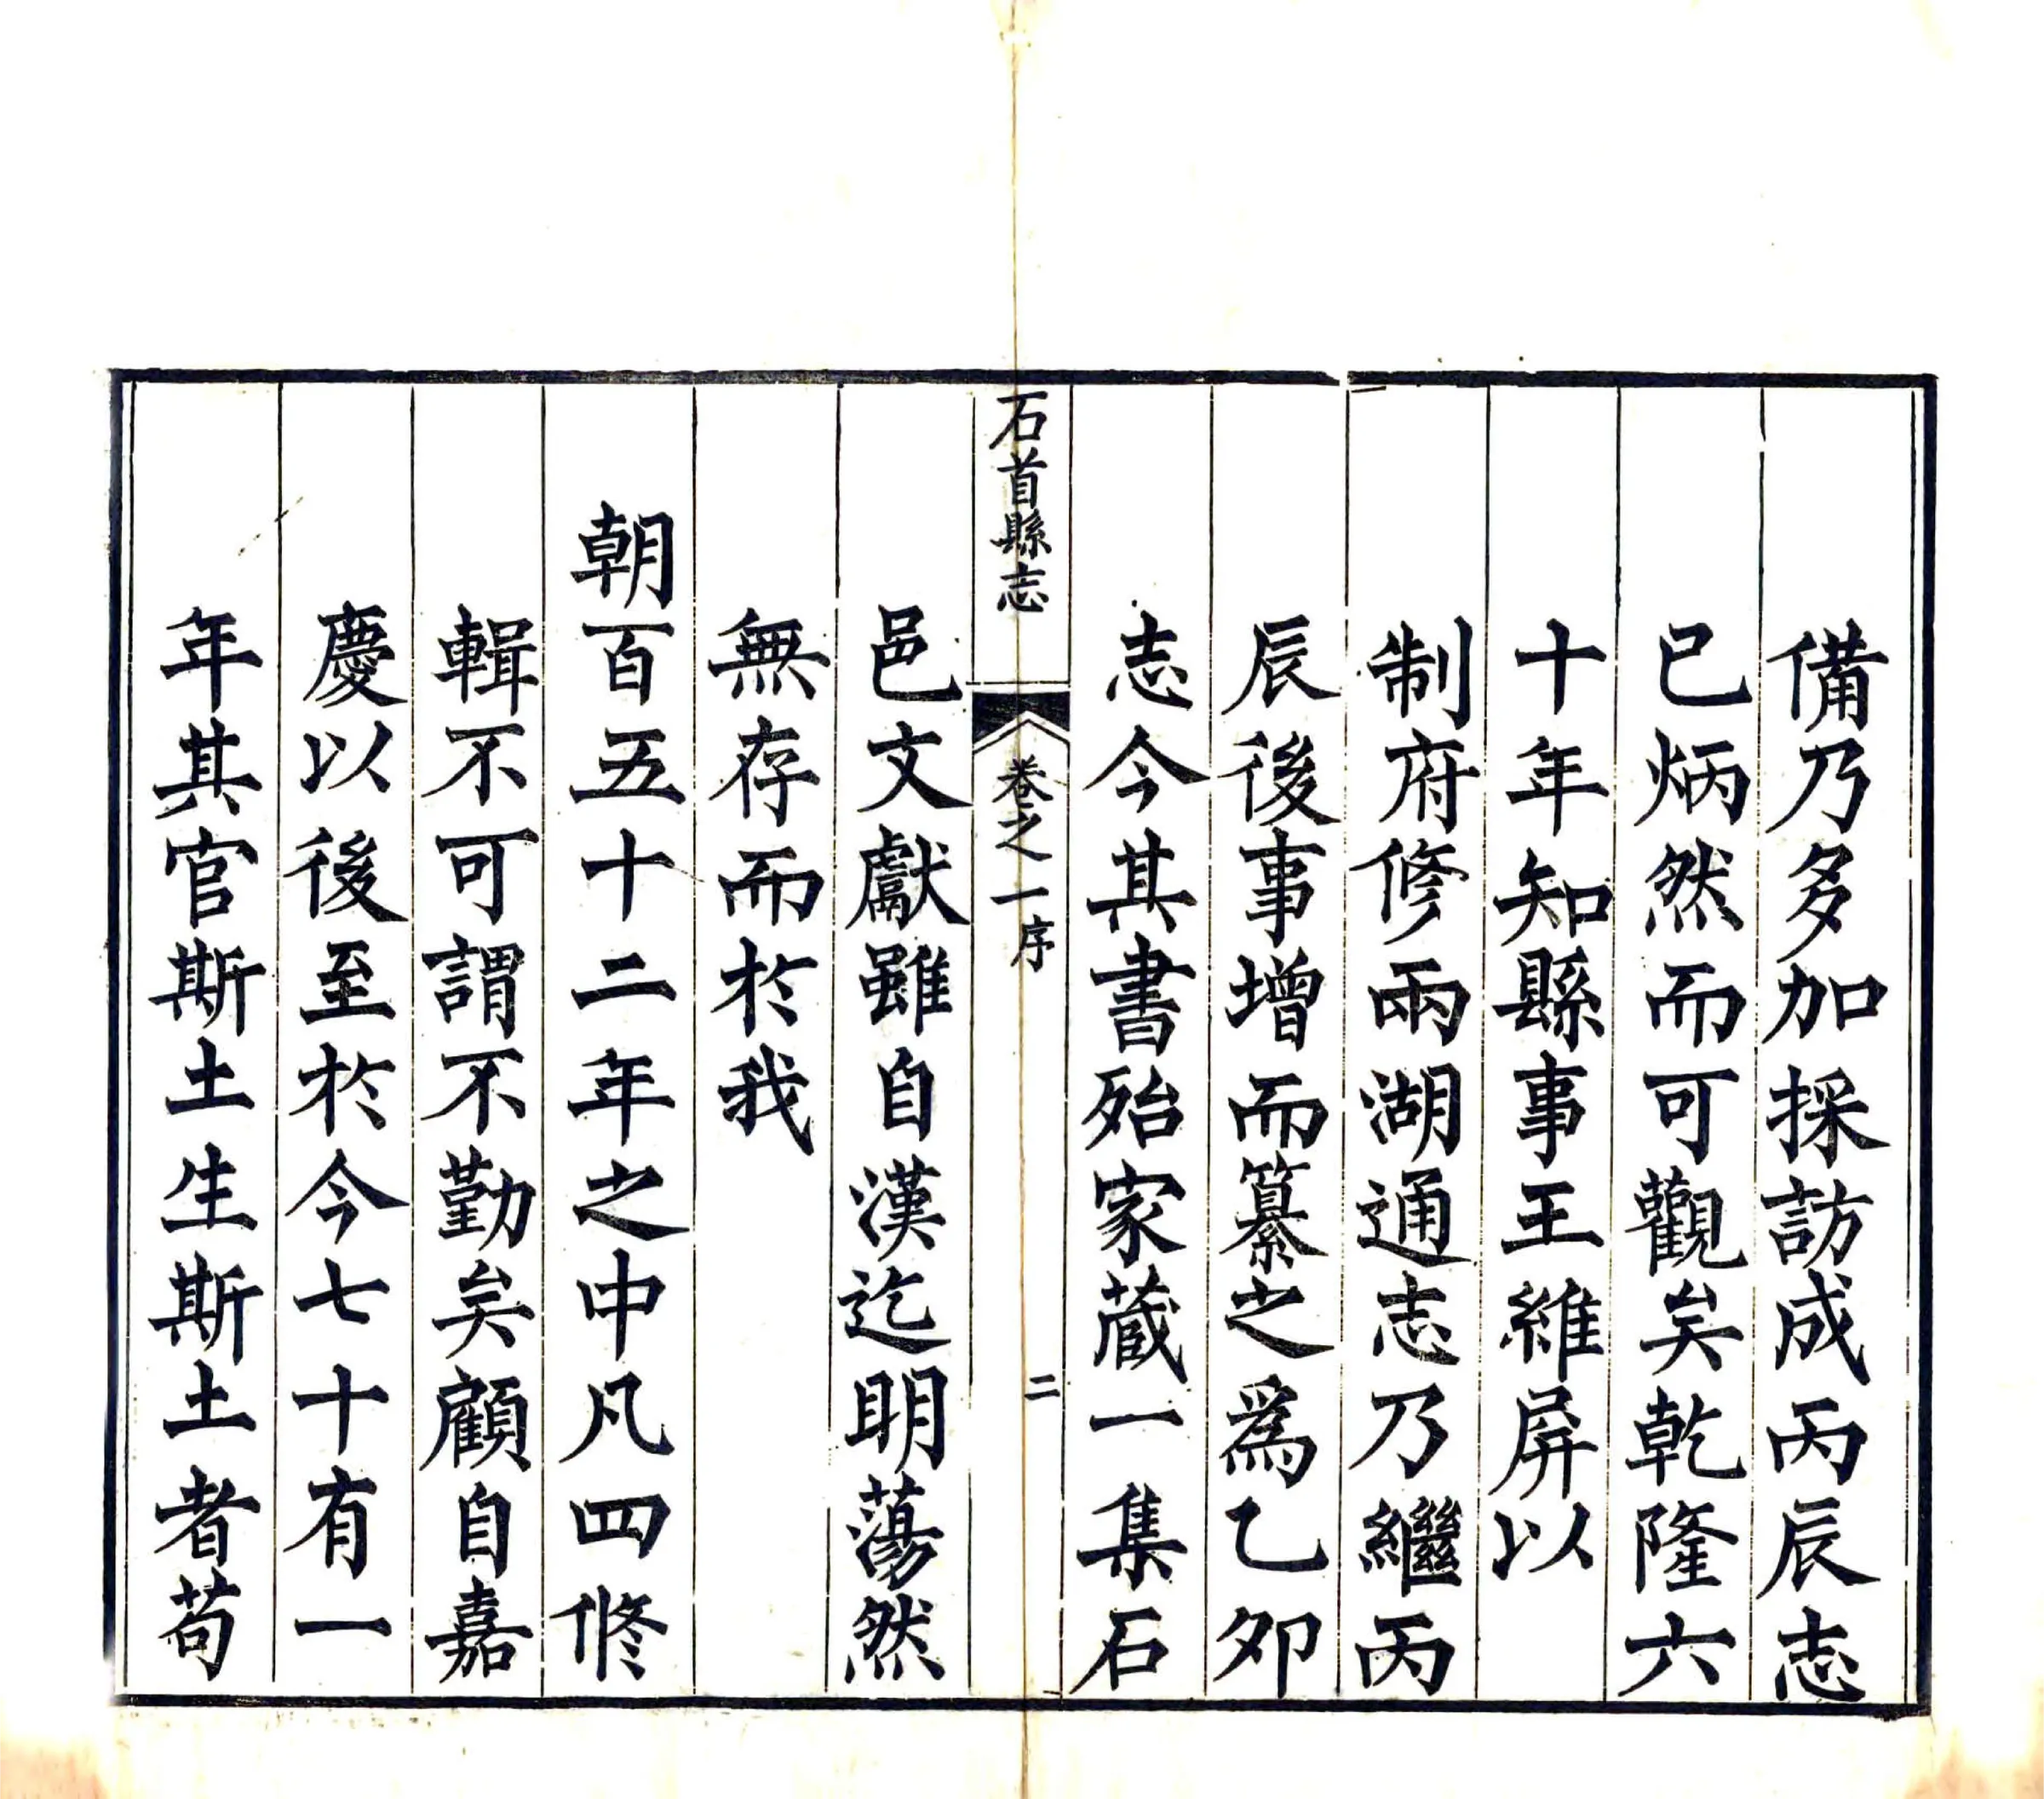 備乃多加採訪成丙辰志
已炳然而可觀矣乾隆六
十年知縣事王維屏以
制府修兩湖通志乃繼丙
辰後事增而纂之爲乙卯
志今其書殆家蔵一集石
石首縣志 卷之一序 二
邑文獻雖自漢迄明蕩然
無存而於我
朝百五十二年之中凡四修
輯不可謂不勤矣顧自嘉
慶以後至於今七十有一
年其官斯土生斯土者苟